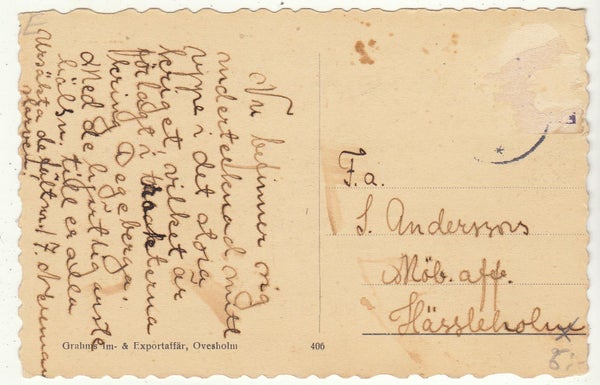 Nu befinner sig
undertecknad mitt
uppe i det stora
kriget, vilket är
förlagt i trakterna
kring Degeberga.
Med de hjärtligaste
hälsn. till er alla
Ursäkta de fältm.
F.a.
S. Anderssons
Möb. aff.
Hässleholm
Grahns Im- & Exportaffär, Ovesholm
406